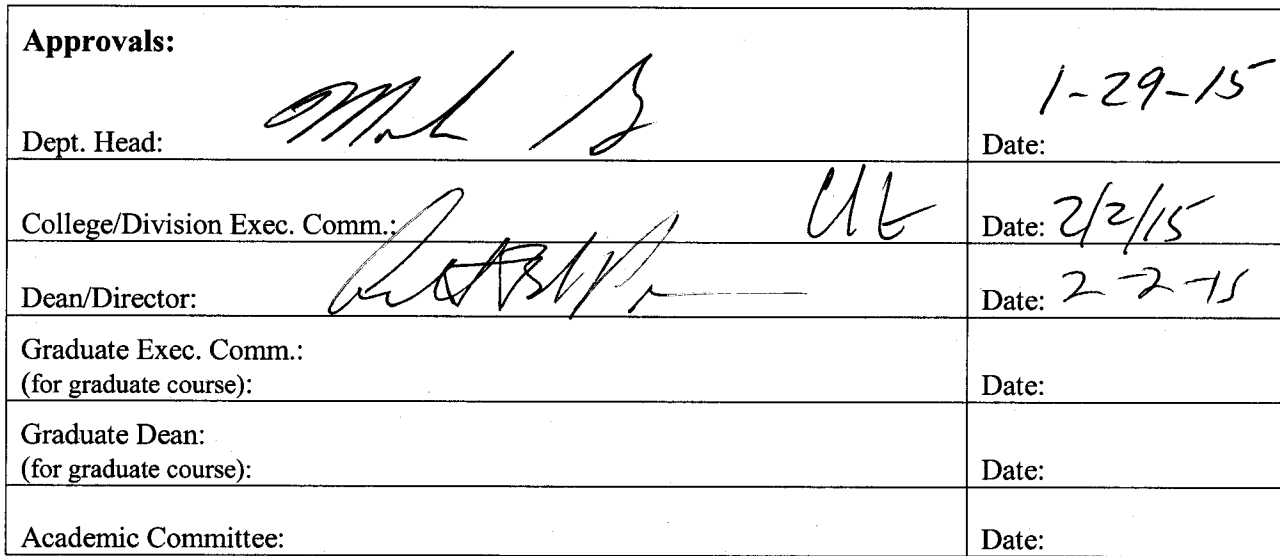 Approvals:
1-29-15
Dept. Head: Date:
College/Division Exec. Comm.: Date: 2/2/15
Dean/Director: Date: 2-2-15
Graduate Exec. Comm.:
(for graduate course): Date:
Graduate Dean:
(for graduate course): Date:
Academic Committee: Date: